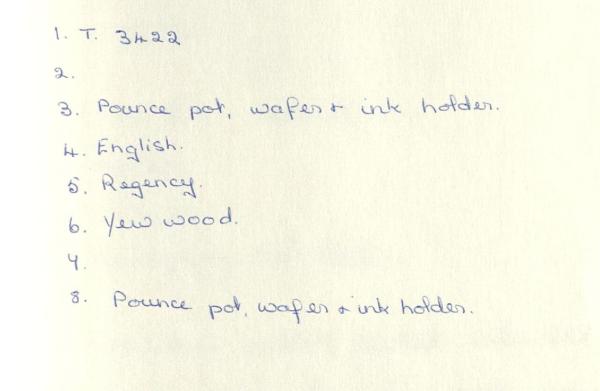 1. T. 3422
2.
3. Pounce pot, wafer & ink holder.
4. English.
5. Regency.
6. Yew wood.
7.
8. Pounce pot, wafer & ink holder.